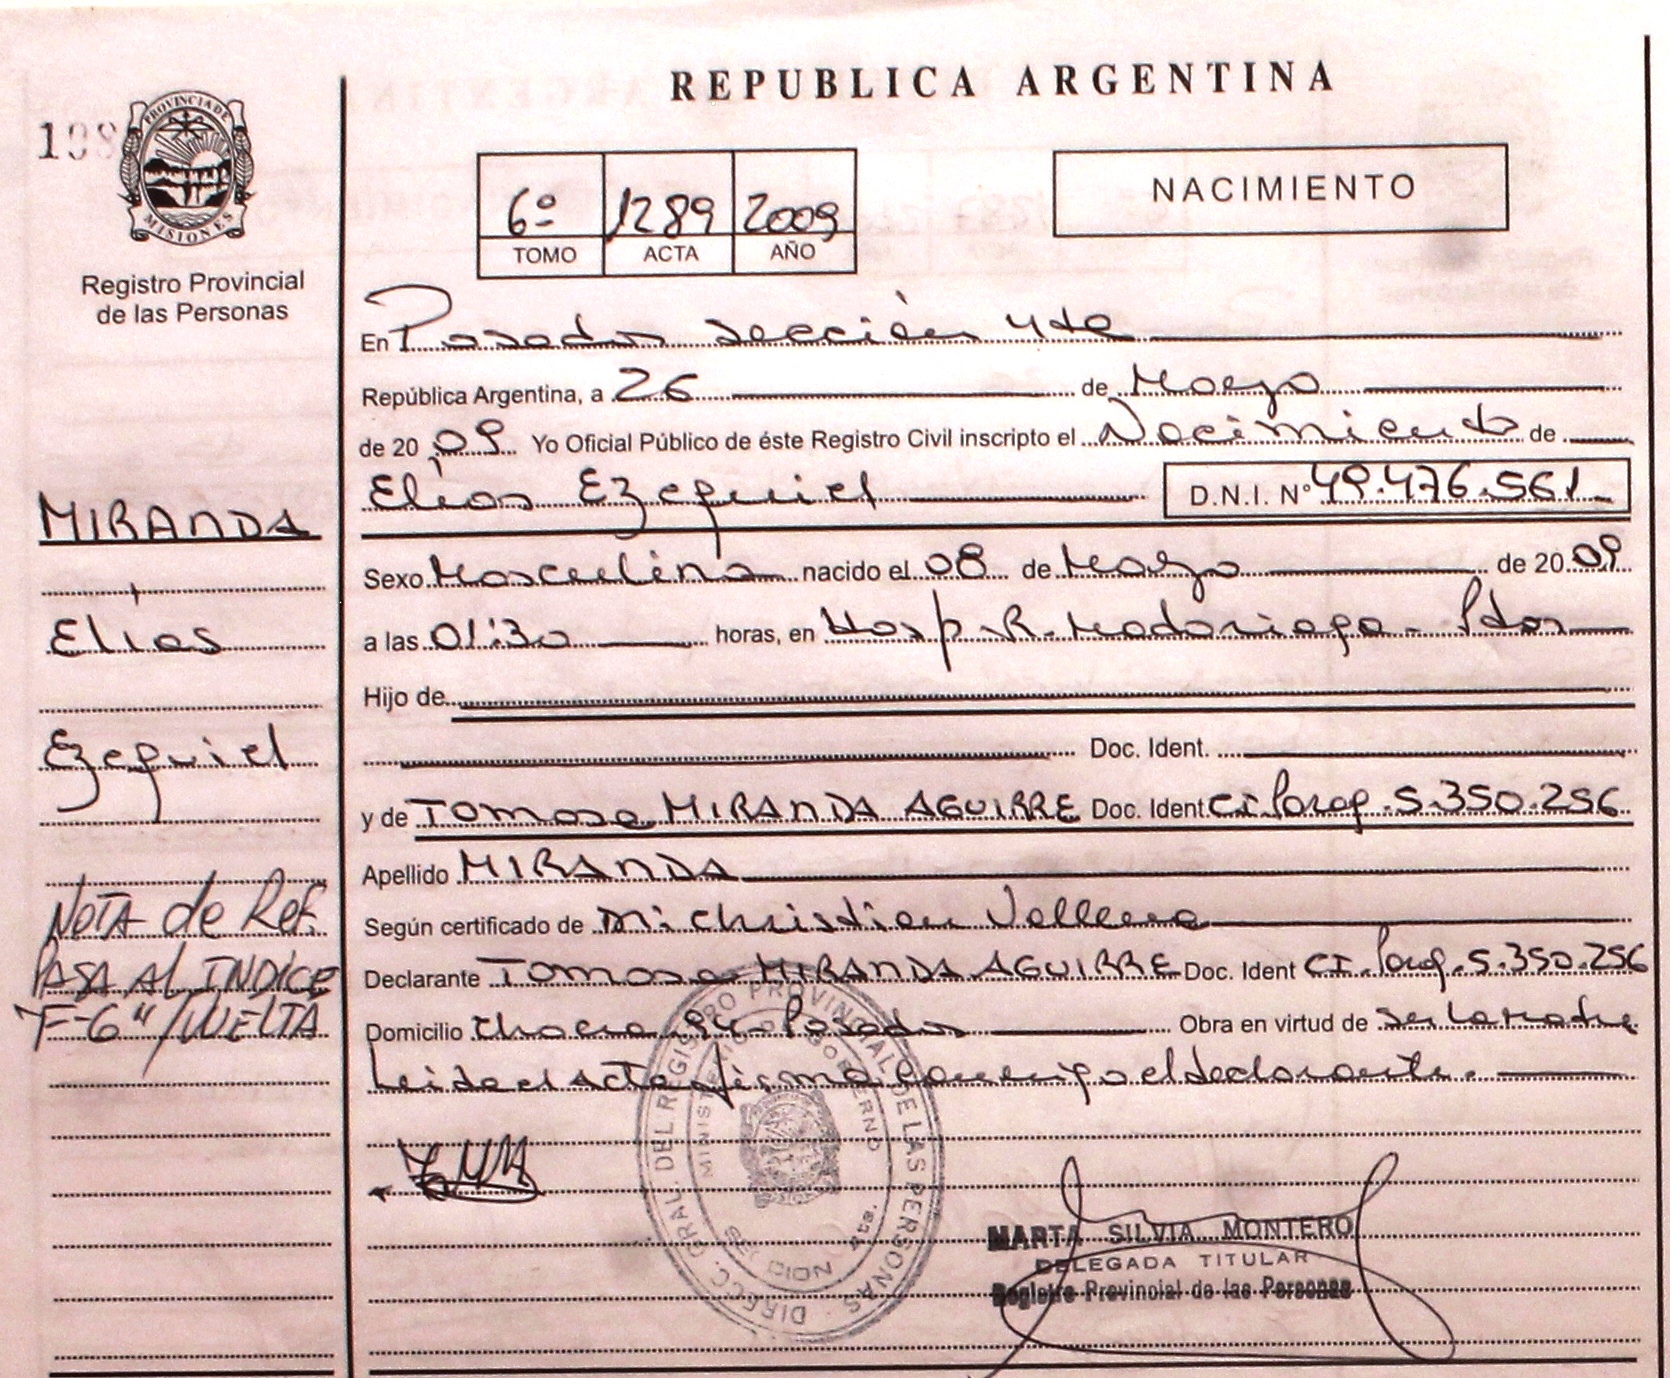 REPUBLICA ARGENTINA
198
PROVINCIA DE
MISIONES
Registro Provincial
de las Personas
6º 1289 2009
TOMO ACTA AÑO
NACIMIENTO
En Posadas sección 4ta
República Argentina, a 26 de Marzo
de 20 09 Yo Oficial Público de éste Registro Civil inscripto el Nacimiento de
Elías Ezequiel D.N.I. Nº 49.476.561
Sexo Masculino nacido el 08 de Marzo de 20 09
a las 01:30 horas, en Hosp. R. Madariaga - Pdas
Hijo de
Doc. Ident.
y de Tomasa MIRANDA AGUIRRE Doc. Ident CI Parag. 5.350.256
Apellido MIRANDA
Según certificado de Christian
Declarante Tomasa MIRANDA AGUIRRE Doc. Ident CI. Parag. 5.350.256
Domicilio chacra Posadas Obra en virtud de ser la madre
Leida el acta firma conmigo el declarante.
MIRANDA
Elias
Ezequiel
NOTA de Ref.
PASA AL INDICE
"F-6" / VUELTA
DIRECC. GRAL. DEL REGISTRO PROVINCIAL DE LAS PERSONAS
GOBIERNO
MARTA SILVIA MONTERO
DELEGADA TITULAR
Registro Provincial de las Personas